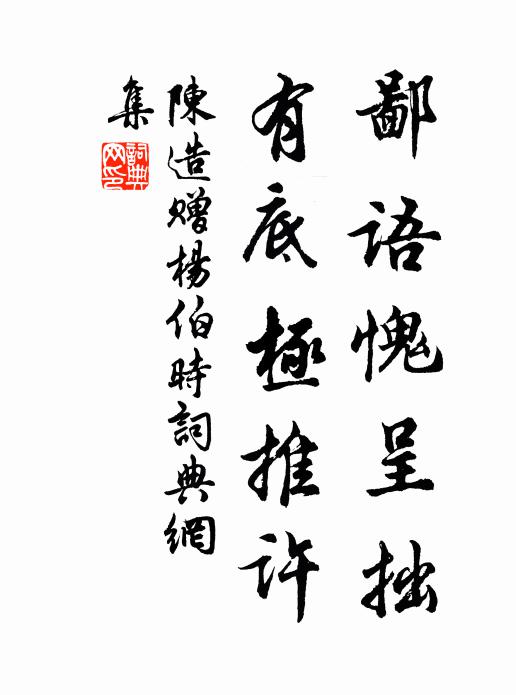 鄙語愧呈拙
有底極推許
陳造贈楊伯時詞典網
集
詞典
网印